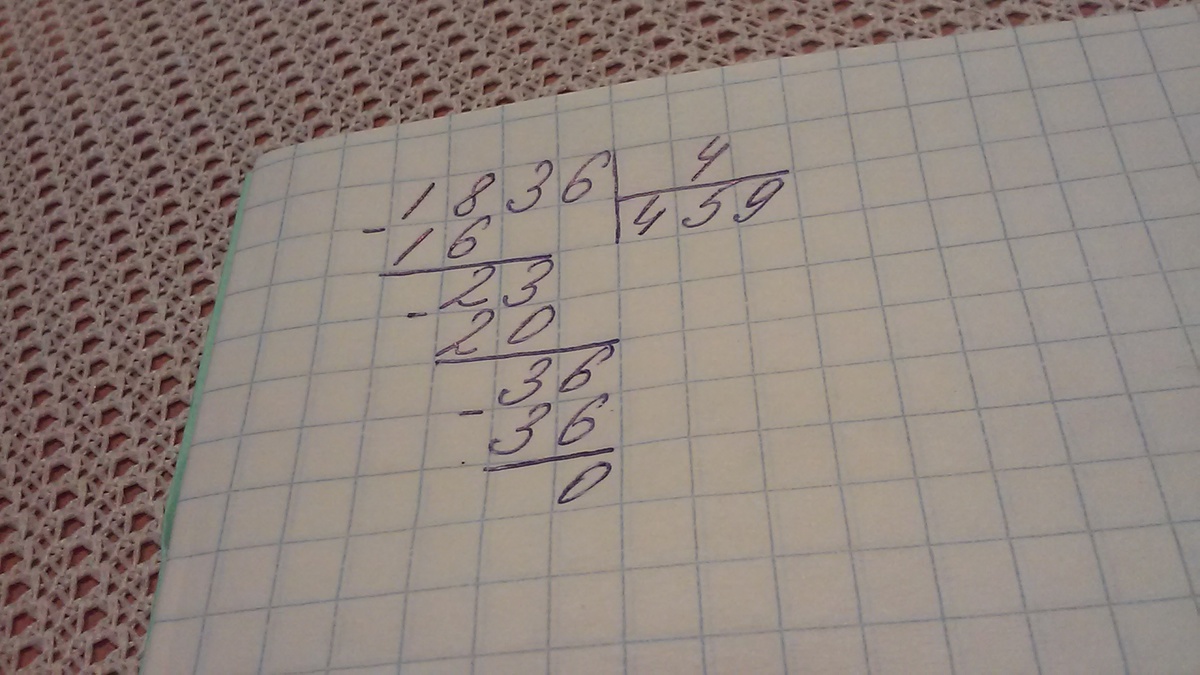 - 1836 | 4
16 | 459
- 23
20
- 36
36
0